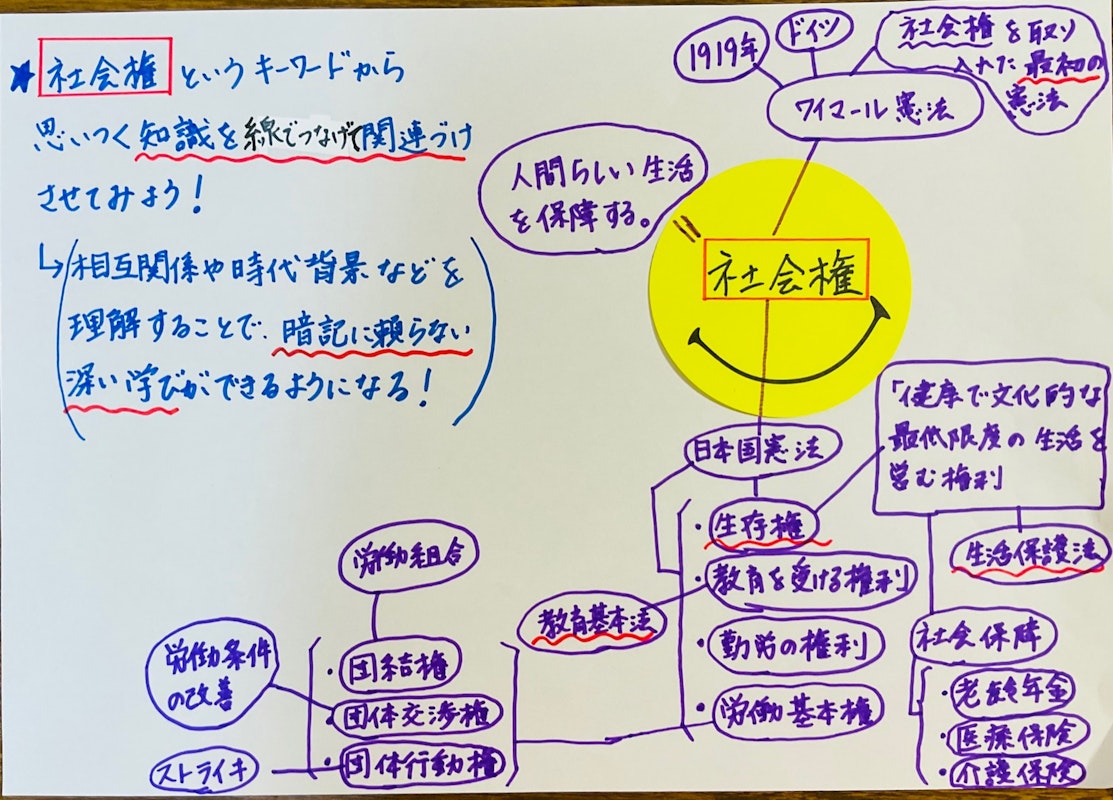 ★社会権というキーワードから
思いつく知識を線でつなげて関連づけ
させてみよう!
↳(相互関係や時代背景などを
理解することで、暗記に頼らない
深い学びができるようになる!)
1919年
ドイツ
社会権を取り
入れた最初の
憲法
ワイマール憲法
人間らしい生活
を保障する。
社会権
日本国憲法
「健康で文化的な
最低限度の生活を
営む権利
・生存権
生活保護法
・教育を受ける権利
教育基本法
・勤労の権利
社会保障
・労働基本権
・老齢年金
・医療保険
・介護保険
労働組合
労働条件
の改善
・団結権
・団体交渉権
ストライキ
・団体行動権